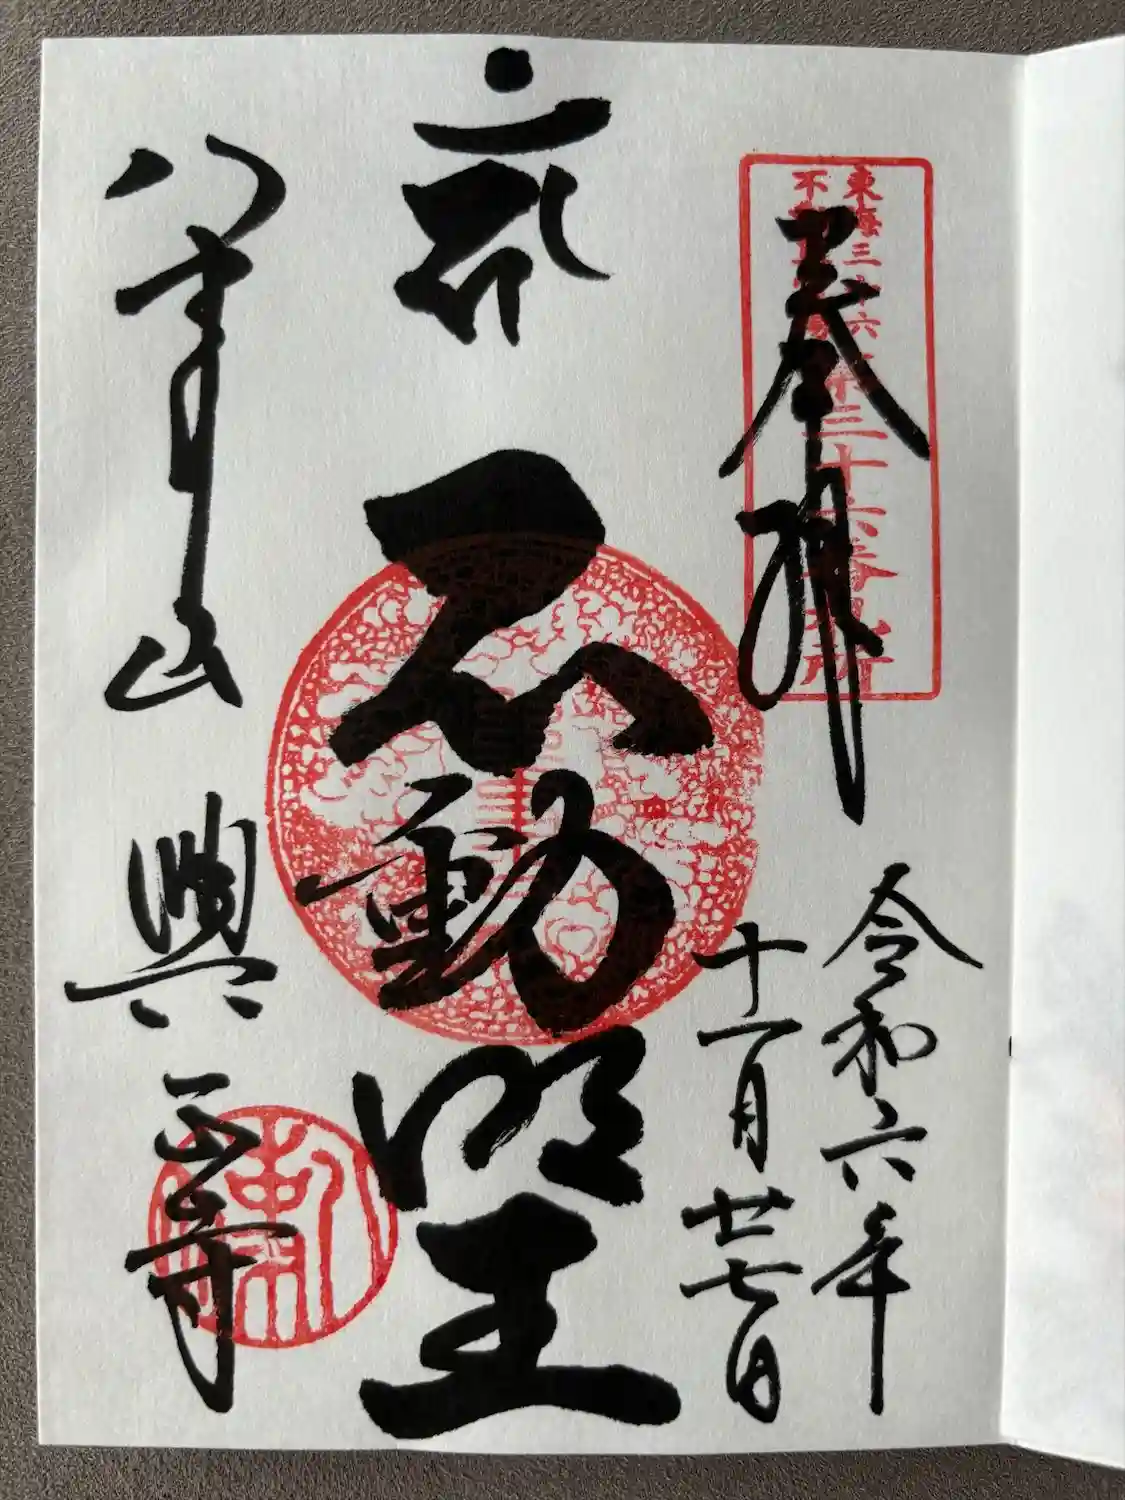 東海三十六
不動尊霊場
第三十六番札所
奉拝
令和六年
十一月廿七日
不動明王
八事山 興正寺